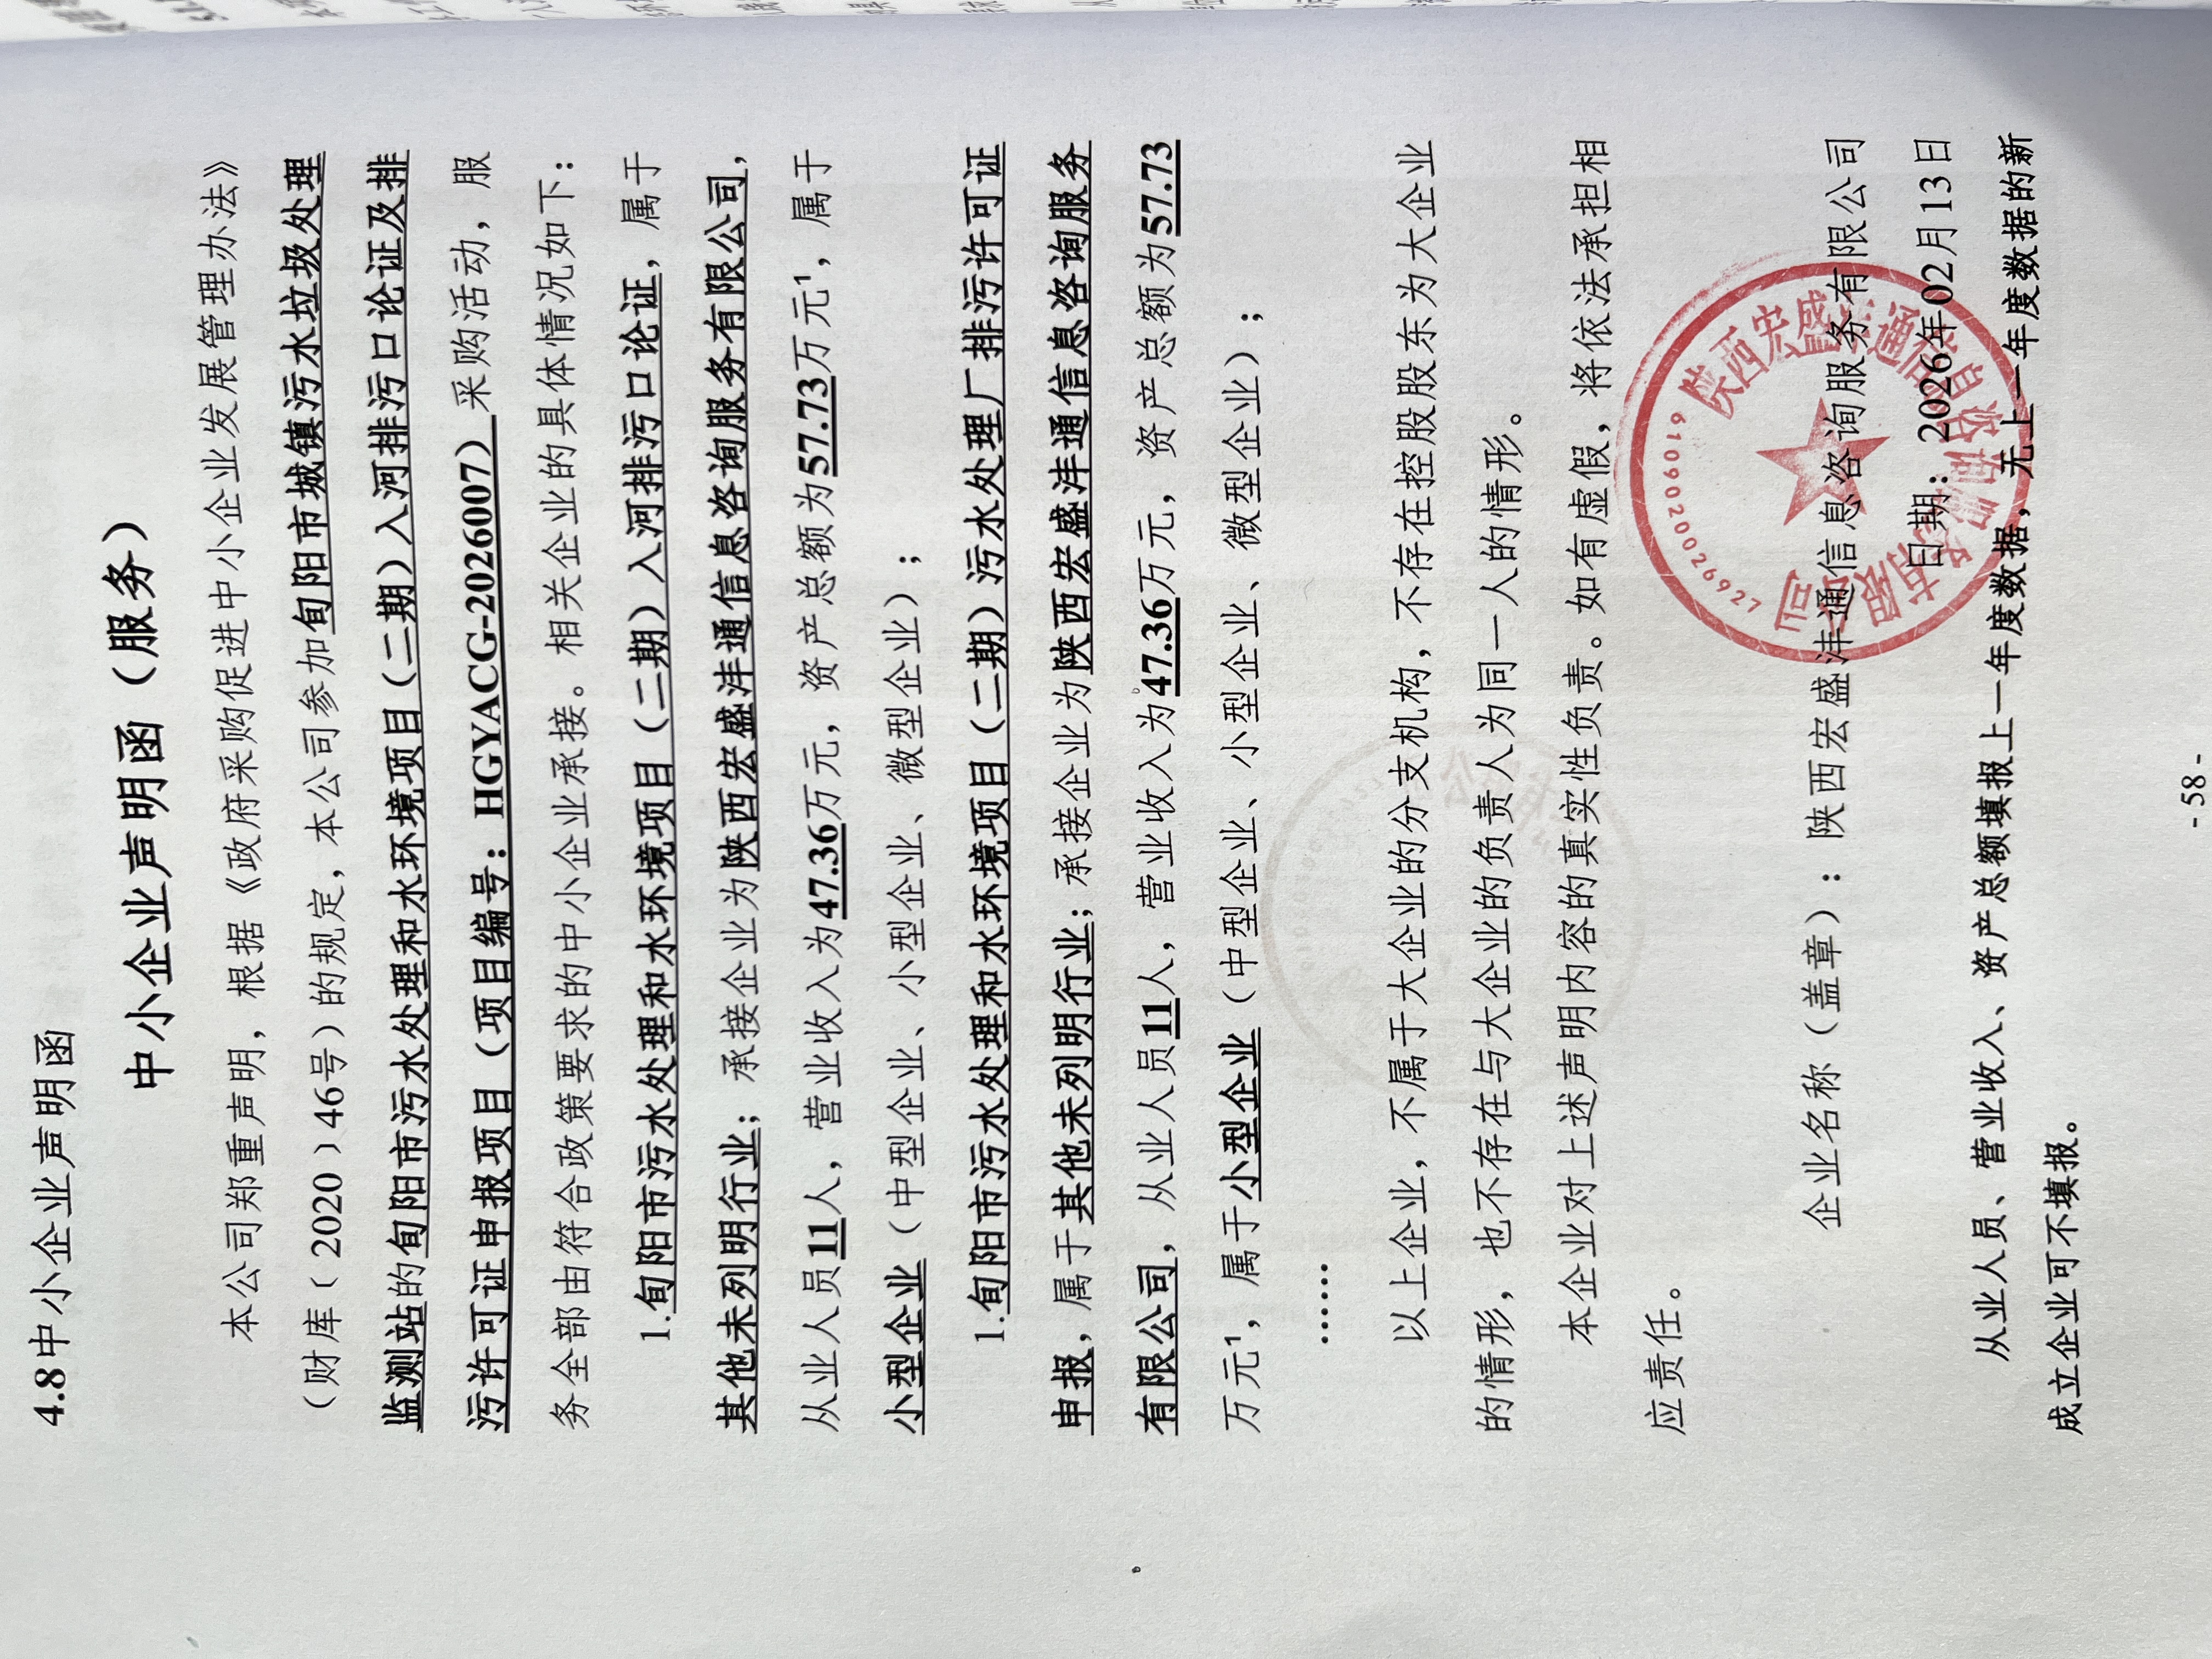 4.8中小企业声明函
中小企业声明函（服务）
本公司郑重声明，根据《政府采购促进中小企业发展管理办法》
（财库﹝2020﹞46号）的规定，本公司参加旬阳市城镇污水垃圾处理
监测站的旬阳市污水处理和水环境项目（二期）入河排污口论证及排
污许可证申报项目（项目编号：HGYACG-2026007）采购活动，服
务全部由符合政策要求的中小企业承接。相关企业的具体情况如下：
1.旬阳市污水处理和水环境项目（二期）入河排污口论证，属于
其他未列明行业；承接企业为陕西宏盛沣通信息咨询服务有限公司，
从业人员11人，营业收入为47.36万元，资产总额为57.73万元¹，属于
小型企业（中型企业、小型企业、微型企业）；
1.旬阳市污水处理和水环境项目（二期）污水处理厂排污许可证
申报，属于其他未列明行业；承接企业为陕西宏盛沣通信息咨询服务
有限公司，从业人员11人，营业收入为47.36万元，资产总额为57.73
万元¹，属于小型企业（中型企业、小型企业、微型企业）；
……
以上企业，不属于大企业的分支机构，不存在控股股东为大企业
的情形，也不存在与大企业的负责人为同一人的情形。
本企业对上述声明内容的真实性负责。如有虚假，将依法承担相
应责任。
企业名称（盖章）：陕西宏盛沣通信息咨询服务有限公司
日期：2026年02月13日
陕西宏盛沣通信息咨询服务有限公司
6109020026927
从业人员、营业收入、资产总额填报上一年度数据，无上一年度数据的新
成立企业可不填报。
- 58 -